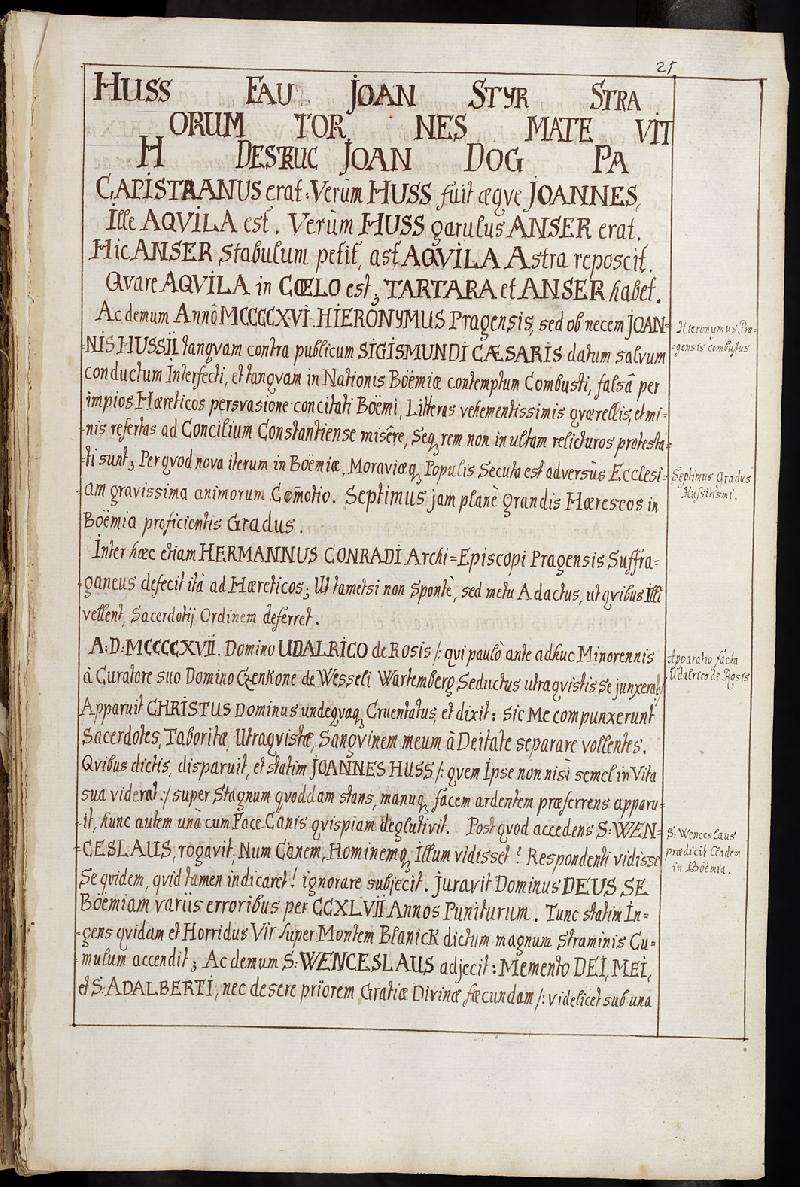 25
HUSS FAUT JOAN STYR STRA
ORUM TOR NES MATE VIT
H DESTRUC JOAN DOG PA
CAPISTRANUS erat: Verùm HUSS fuit æqve JOANNES,
Ille AQVILA est. Verùm HUSS garulus ANSER erat.
Hic ANSER stabulum petit, ast AQVILA Astra reposcit.
Qvare AQVILA in CŒLO est; TARTARA et ANSER habet.
Ac demum Annô MCCCCXVI. HIERONYMUS Pragensis, sed ob necem JOAN-
NIS HUSSII tanqvam contra publicum SIGISMUNDI CÆSARIS datum salvum
conductum Interfecti, et tanqvam in Nationis Boëmiæ contemptum Combusti, falsâ per
impios Hæreticos persvasione concitati Boëmi, Litteras vehementissimis qværellis, et mi-
nis refertas ad Concilium Constantiense misêre, Seq, rem non inultam relicturos protesta-
ti sunt; Per qvod nova iterum in Boëmiæ, Moraviæq, Populis Secuta est adversùs Ecclesi-
am gravissima animorum Com̃otio. Septimus jam planè grandis Hæreseos in
Boëmia proficientis Gradus.
Inter hæc etiam HERMANNUS CONRADI Archi-Episcopi Pragensis Suffra-
ganeus defecit ità ad Hæreticos; Ut tametsi non Spontè, sed metu Adactus, ut qvibus Illi
vellent, Sacerdotij Ordinem deferret.
A: D: MCCCCXVII. Domino UDALRICO de Rosis /: qui paulò ante adhuc Minorennis
à Curatore suo Domino Czenkone de Wesseli Wartemberg Seductus utraqvistis se junxerat/
Apparuit CHRISTUS Dominus undeqvaq, Cruentatus, et dixit: Sic Me compunxerunt
Sacerdotes, Taboritæ, Utraqvistæ, Sangvinem meum à Deitate separare vollentes.
Qvibus dictis, disparuit, et statim JOANNES HUSS /: qvem Ipse non nisi semel in Vita
sua viderat :/ super Stagnum qvoddam stans, manuq, facem ardentem præferrens apparu-
it, hunc autem unà cum Face Canis qvispiam deglutivit. Post qvod accedens S: WEN-
CESLAUS, rogavit, Num Canem, Hominemq, Illum vidisset? Respondenti vidisse
Se qvidem, qvid tamen indicaret! ignorare subjecit. Juravit Dominus DEUS SE
Boëmiam variis erroribus per CCXLVII Annos Puniturum. Tunc statim In-
gens qvidam et Horridus Vir super Montem Blanick dictum magnum Straminis Cu-
mulum accendit; Ac demum S: WENCESLAUS adjecit: Memento DEI, MEI,
et S: ADALBERTI, nec desere priorem Gratiæ Divinæ fæcundam /: videlicet sub una
Hieronymus Pra-
gensis combustus
Septimus Gradus
Hussitismi.
Apparitio facta
Udalrico de Rosis
S: Wenceslaus
prædicit
in Boëmia.